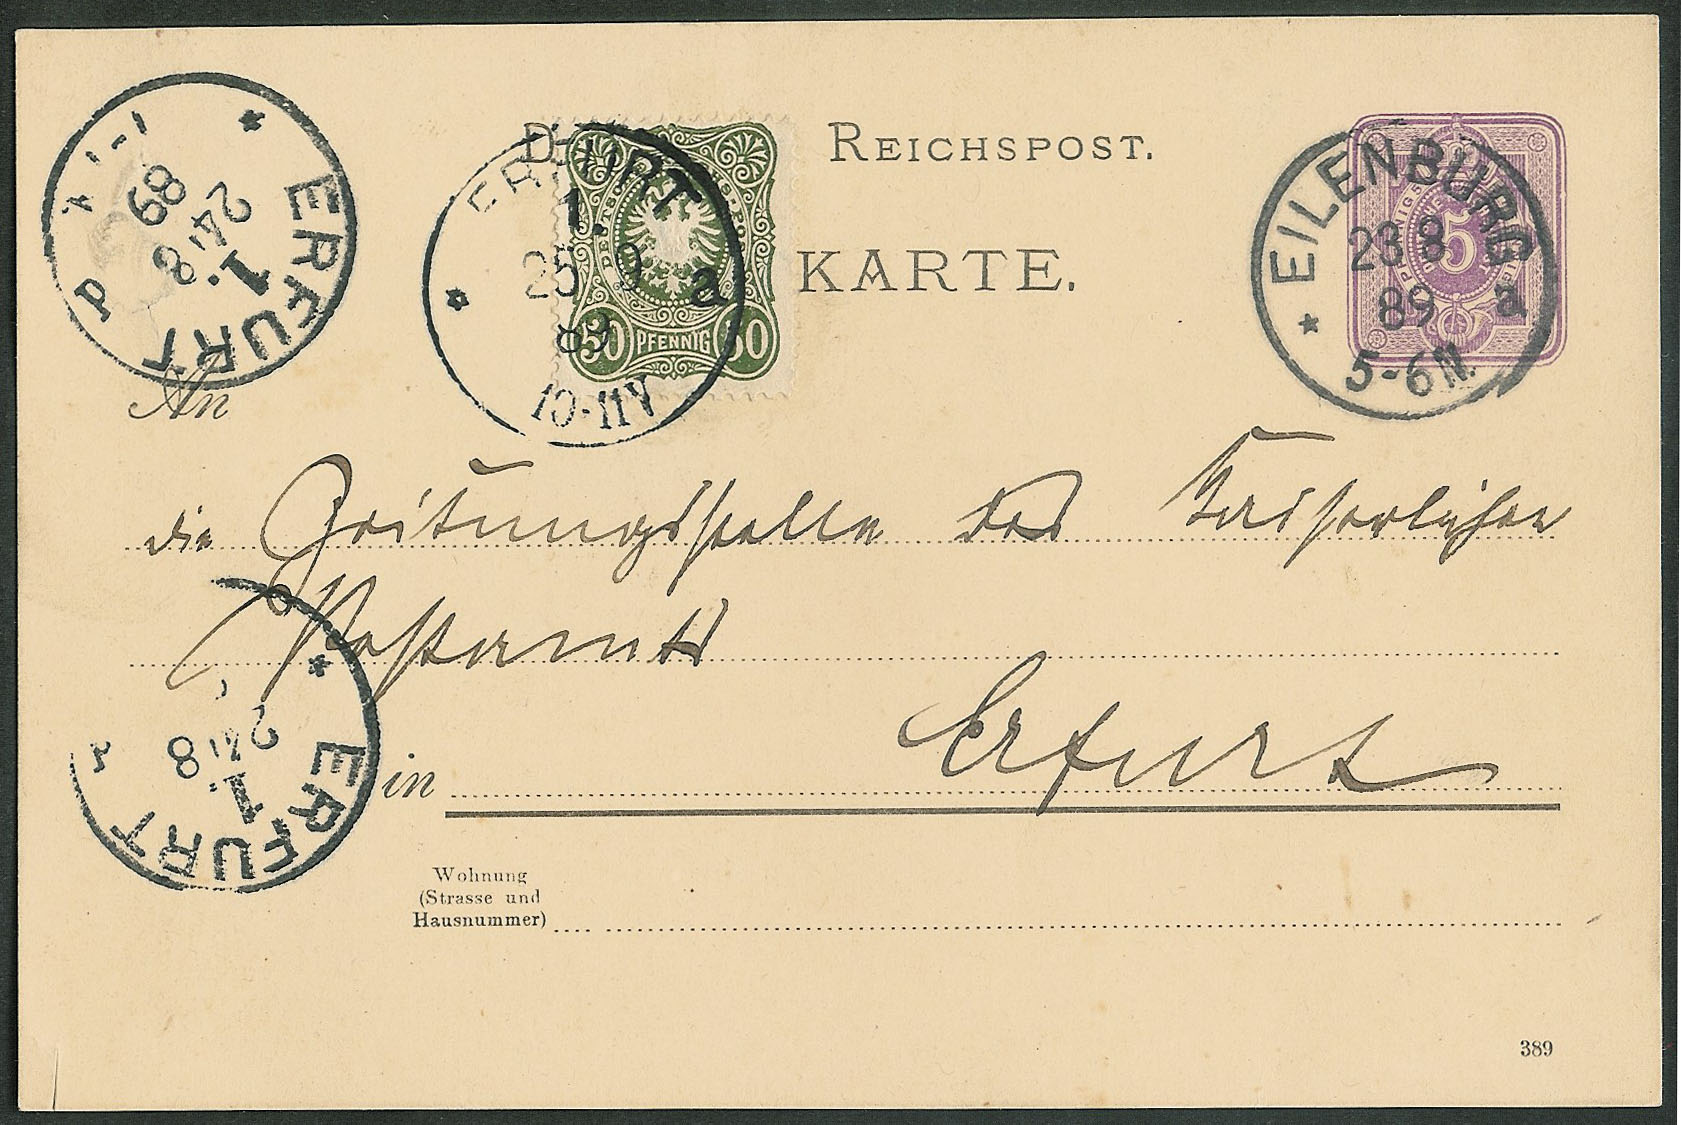 D REICHSPOST.
KARTE.
ERFURT
1.
24 8
89
d
ERFURT
1.
25 9 a
89
10-11V
50 PFENNIG 50
EILENBURG
23 8
89 a
5-6N.
5
An
die Zeitungsstelle des Kaiserlichen
Postamts
Erfurt
in
ERFURT
1.
24 8
Wohnung
(Strasse und
Hausnummer)
389